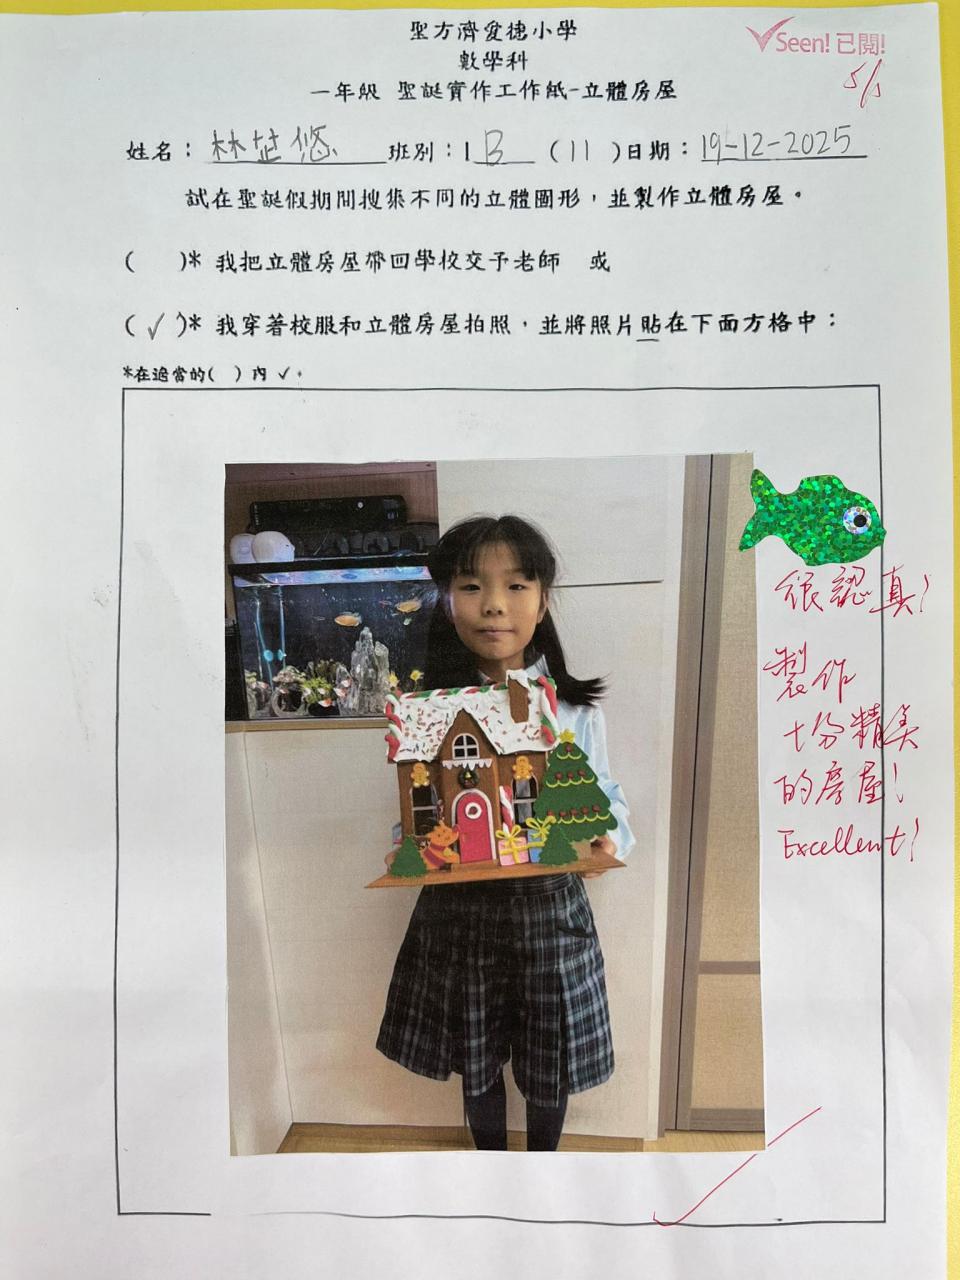 聖方濟愛德小學
數學科
一年級 聖誕實作工作紙-立體房屋
Seen! 已閱!
5/1
姓名：林芷悠 班別：1B (11)日期：19-12-2025
試在聖誕假期間搜集不同的立體圖形，並製作立體房屋。
( )* 我把立體房屋帶回學校交予老師 或
(✓)* 我穿著校服和立體房屋拍照，並將照片貼在下面方格中：
*在適當的( ) 內 ✓。
很認真!
製作
十分精美
的房屋!
Excellent!